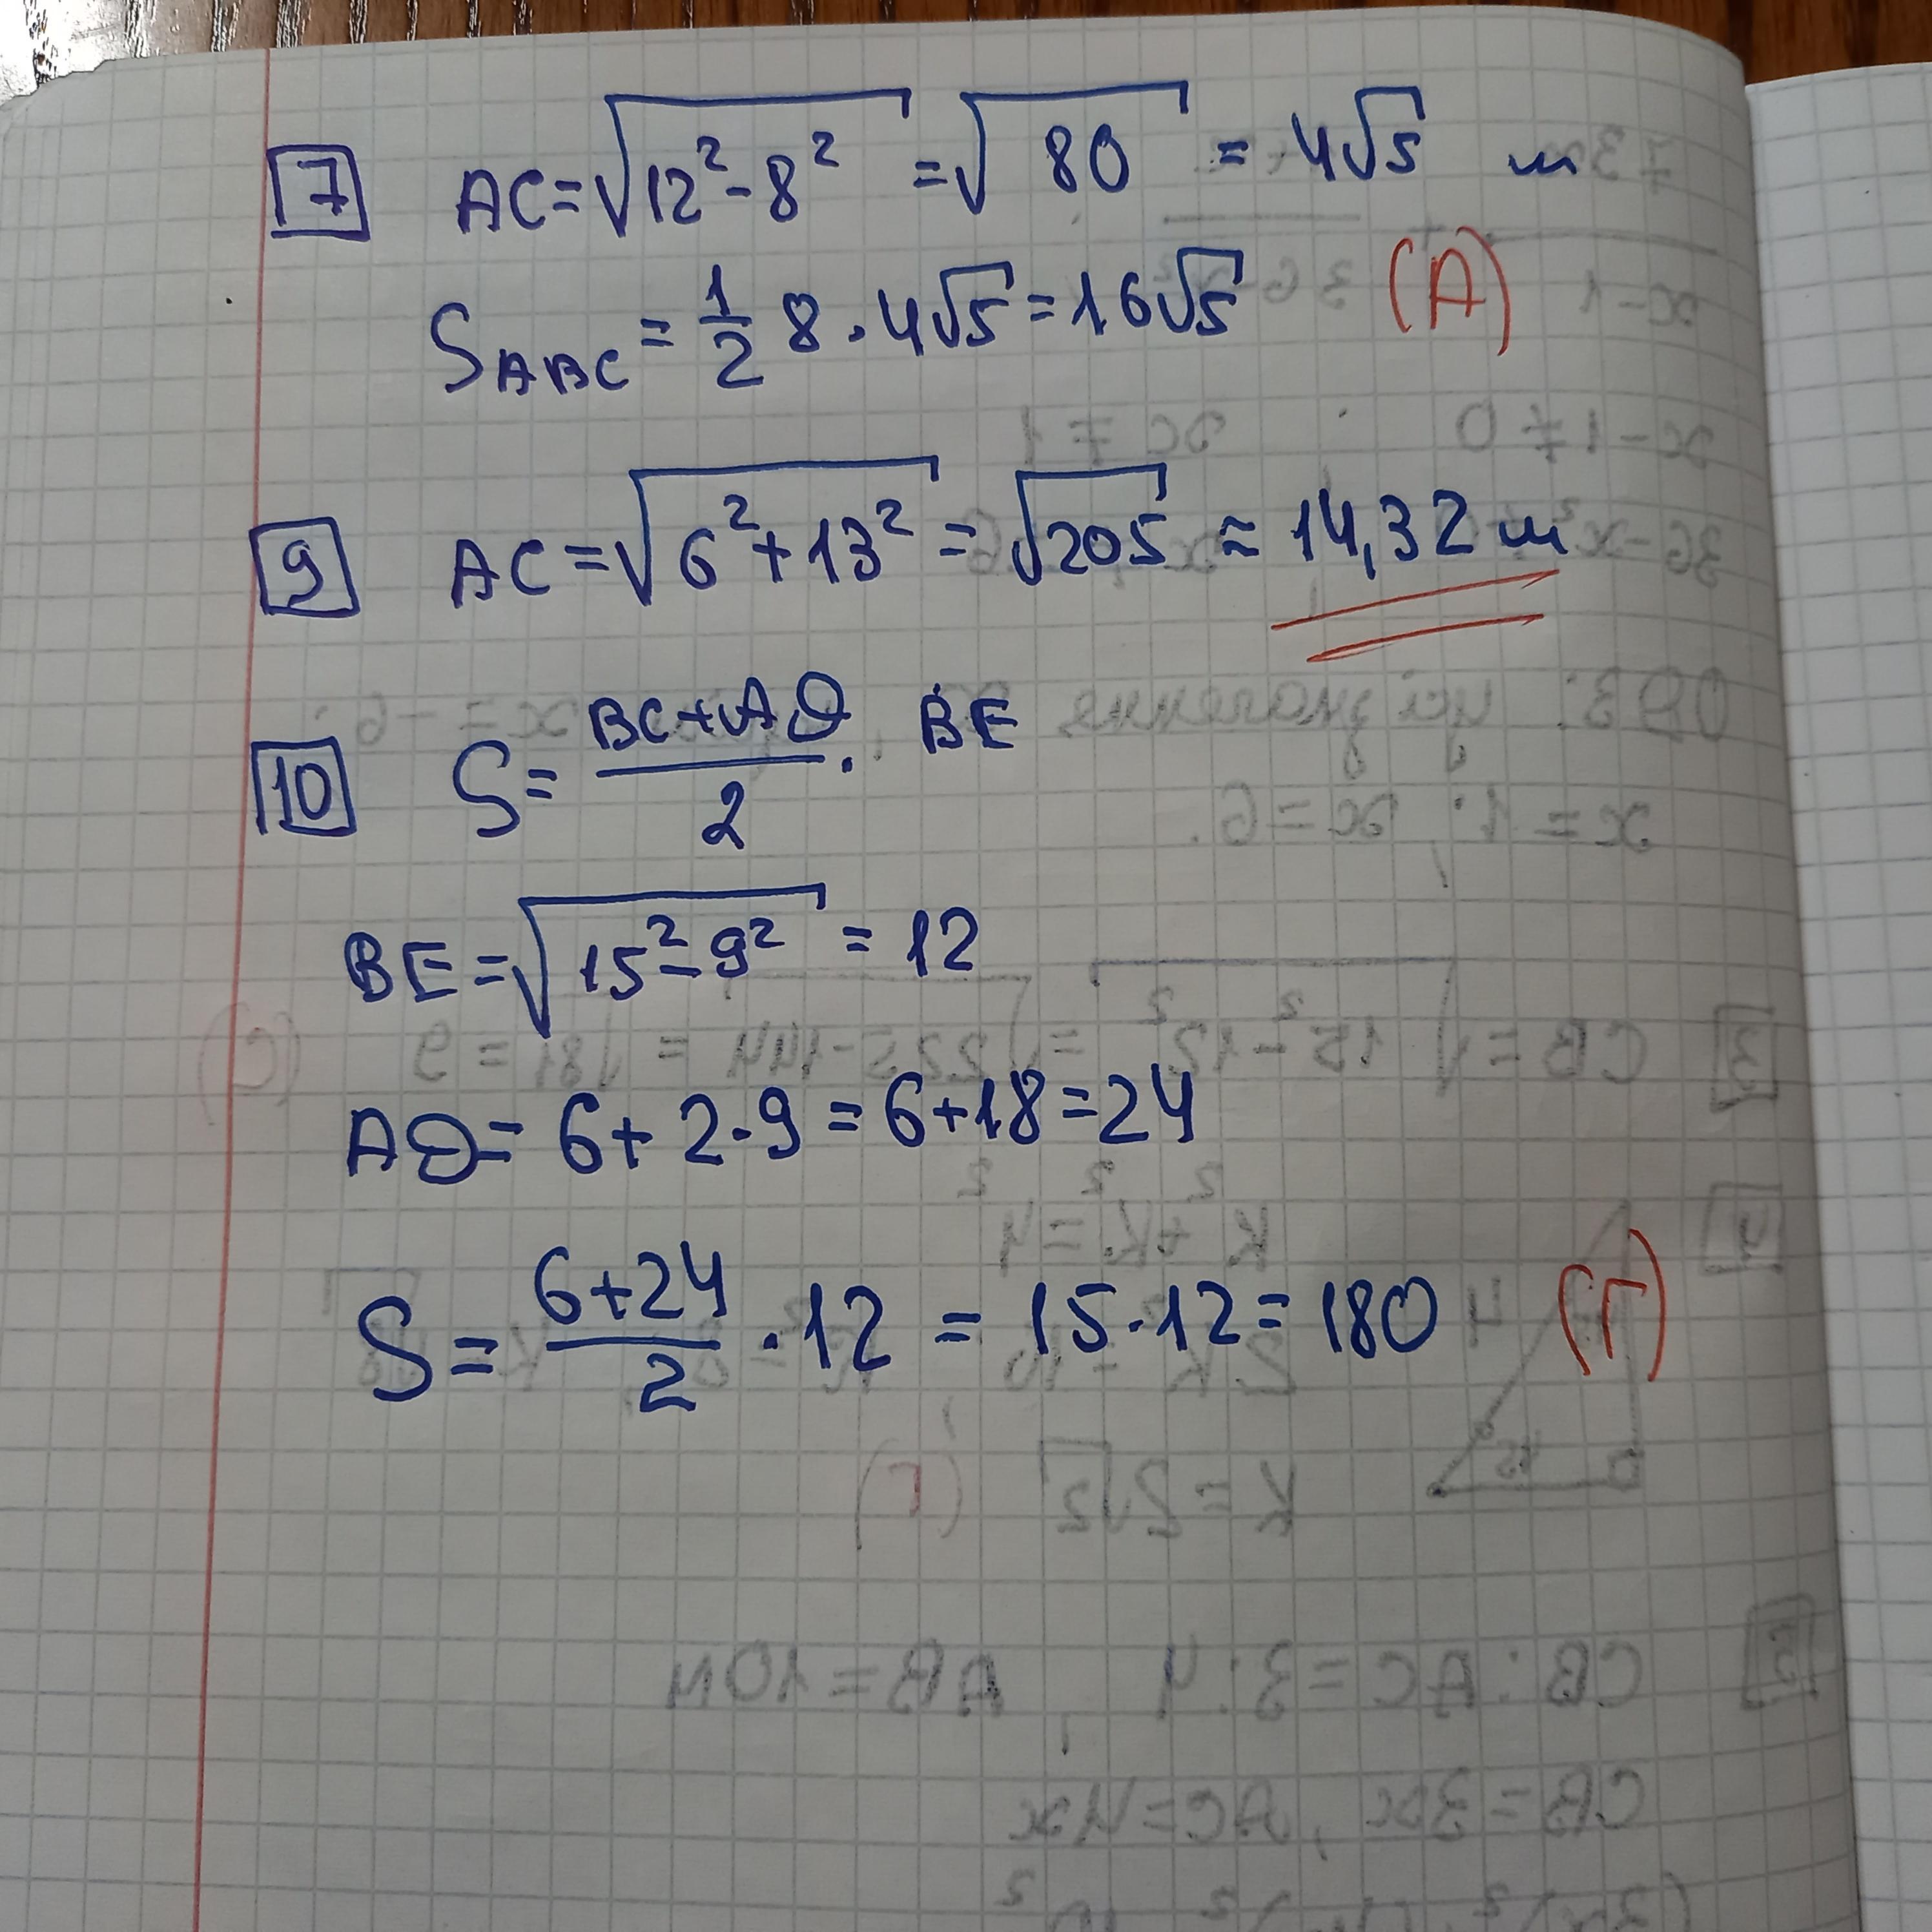 7 AC=√12²-8² =√80 = 4√5 м
S ABC = 1/2 8·4√5=16√5 (А)
9 AC=√6²+13² = √205 ≈ 14,32 м
10 S= BC+AD/2 · BE
BE=√15²-9² = 12
AD= 6+2·9=6+18=24
S= 6+24/2 ·12 = 15·12= 180 (Г)